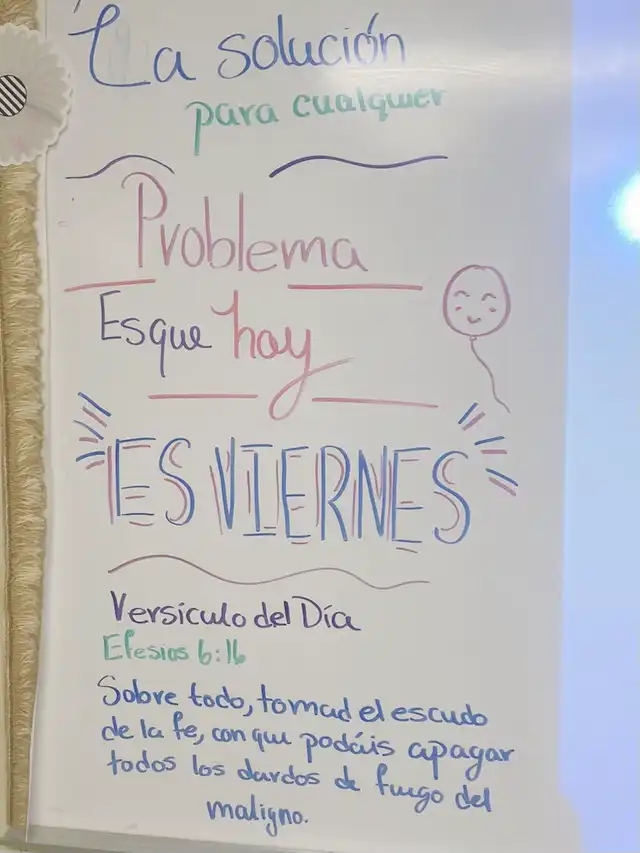 La solución
para cualquier
Problema
Esque hoy
ES VIERNES
Versiculo del Día
Efesios 6:16
Sobre todo, tomad el escudo
de la fe, con que podáis apagar
todos los dardos de fuego del
maligno.